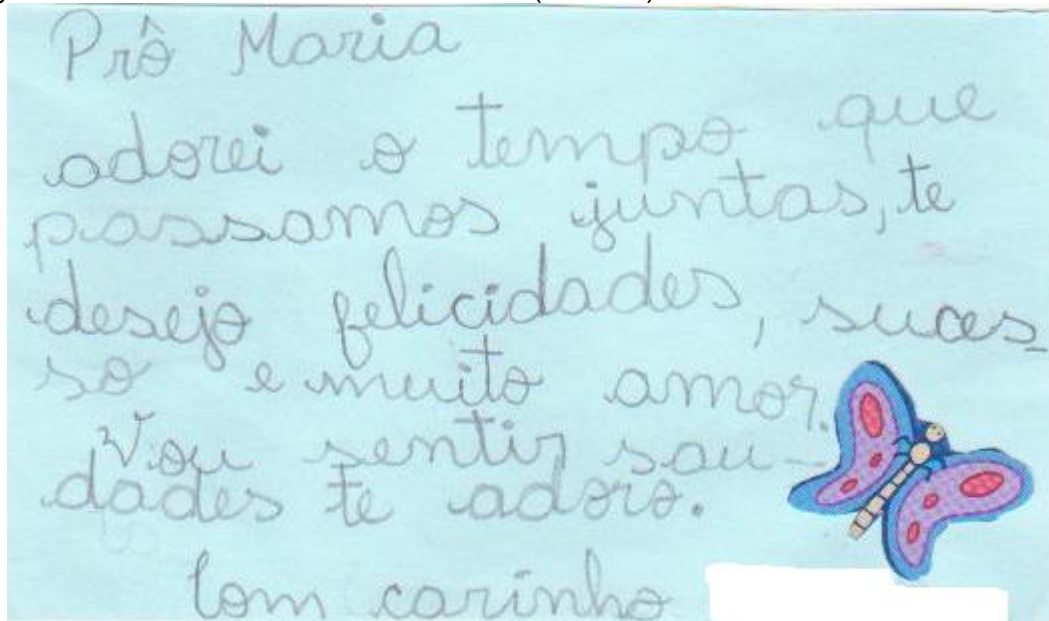 Prô Maria
adorei o tempo que
passamos juntas, te
desejo felicidades, suces_
so e muito amor.
Vou sentir sau-
dades te adoro.
Com carinho